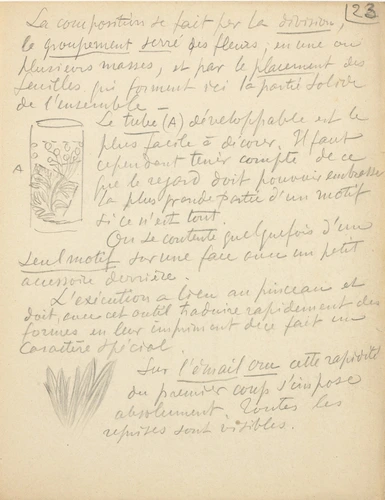 23
La composition se fait par la division,
le groupement serré des fleurs, en une ou
plusieurs masses, et par le placement des
feuilles qui forment ici la partie solide
de l'ensemble —
Le tube (A) développable est le
plus facile à décorer. Il faut
A
cependant tenir compte de ce
que le regard doit pouvoir embrasser
la plus grande partie d'un motif
si ce n'est tout.
On se contente quelquefois d'un
seul motif sur une face avec un petit
accessoire derrière.
L'exécution a lieu au pinceau et
doit, avec cet outil traduire rapidement des
formes en leur imprimant de ce fait un
caractère spécial.
Sur l'émail cru cette rapidité
du premier coup s'impose
absolument. Toutes les
reprises sont visibles.